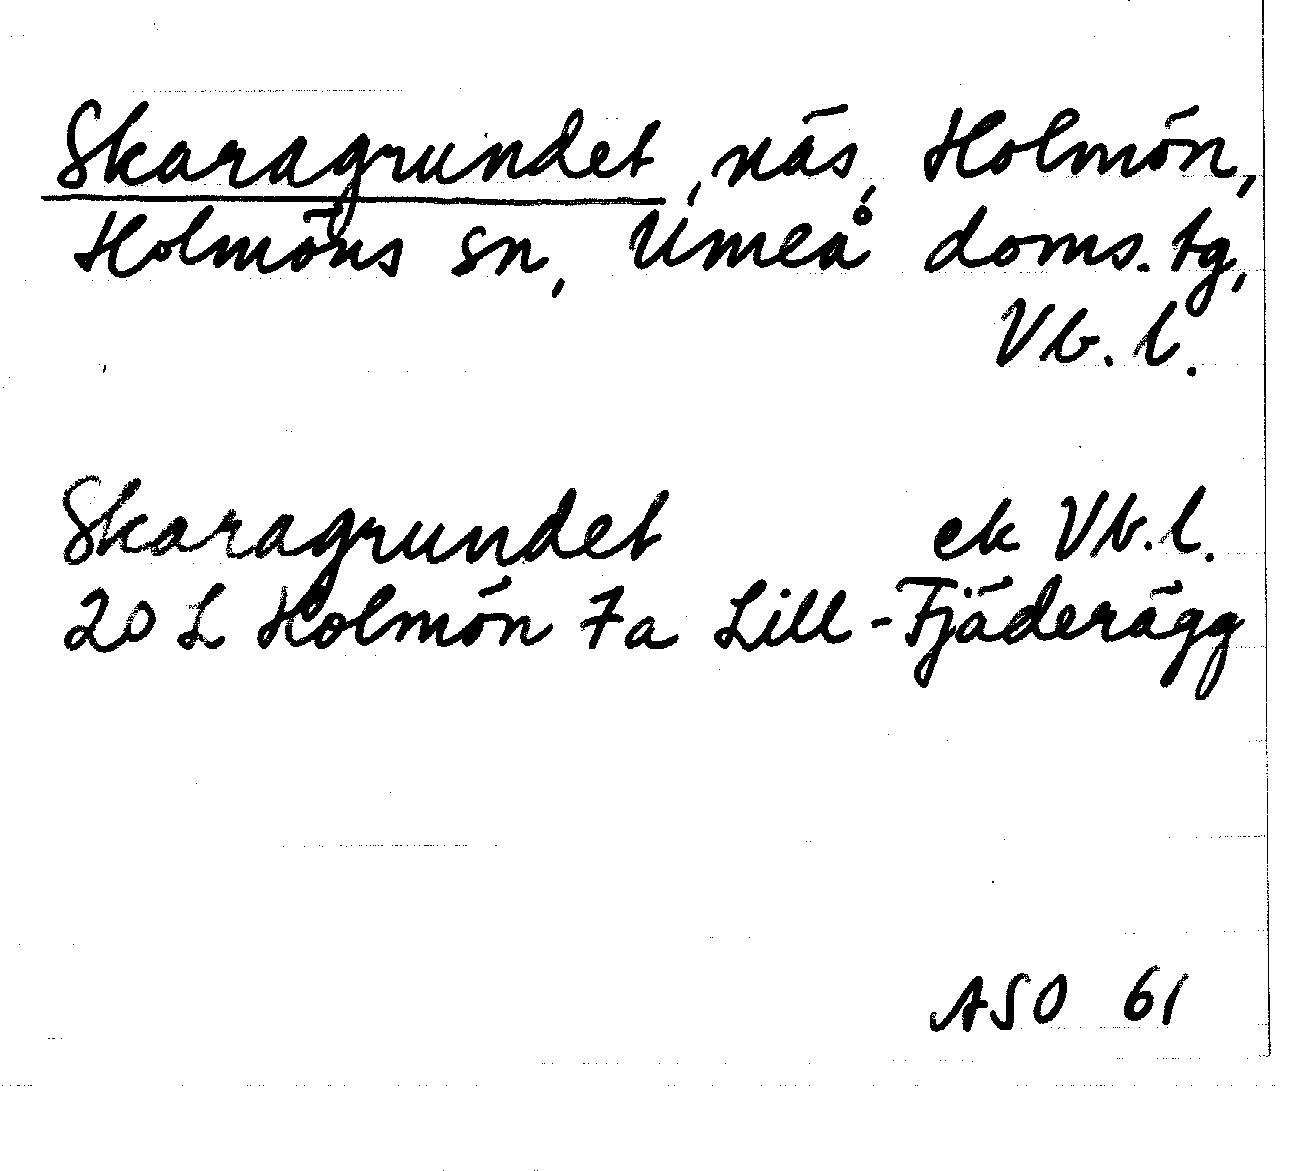 Skaragrundet, näs, Holmön,
Holmöns sn, Umeå doms. tg,
Vb. l.
Skaragrundet ek Vb. l.
20 L Holmön 7a Lill-Fjäderägg
ASO 61